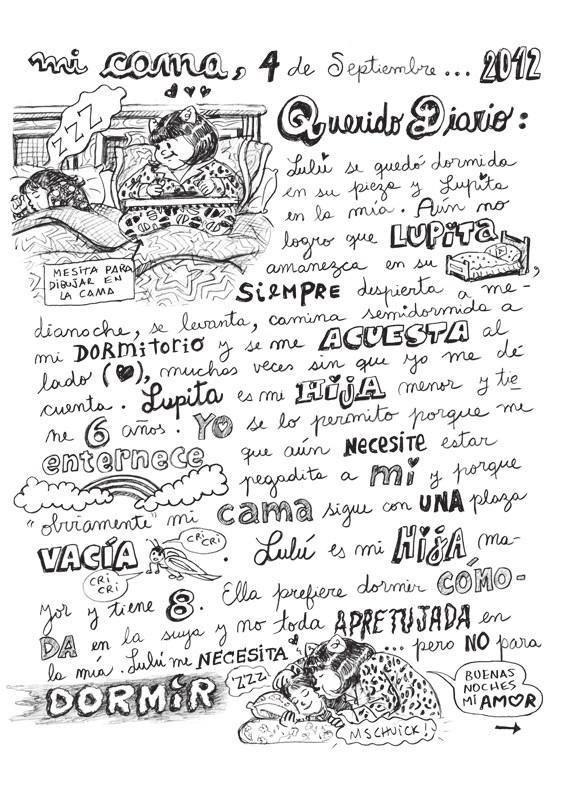 mi cama, 4 de Septiembre... 2012
ZZZ
Querido Diario:
Lulú se quedó dormida
en su pieza y Lupita
en la mía. Aún no
logro que LUPITA
amanezca en su ,
MESITA PARA
DIBUJAR EN
LA CAMA
SIEMPRE despierta a me-
dianoche, se levanta, camina semidormida a
mi DORMITORIO y se me ACUESTA al
lado (♥), muchas veces sin que yo me dé
cuenta. Lupita es mi HIJA menor y tie
ne 6 años. Yo se lo permito porque me
enternece que aún NECESITE estar
pegadita a mí y porque
"obviamente" mi cama sigue con UNA plaza
VACÍA. Lulú es mi Hija ma-
CRI CRI
CRI
CRI
yor y tiene 8. Ella prefiere dormir CÓMO-
DA en la suya y no toda APRETUJADA en
la mía. Lulú me NECESITA ... pero NO para
DORMIR
ZZZ
BUENAS
NOCHES
MI AMOR
MSCHUICK!
→